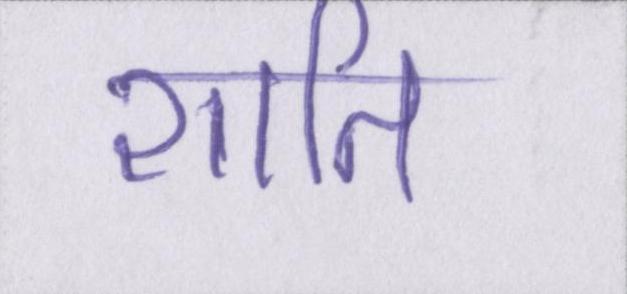 शांति